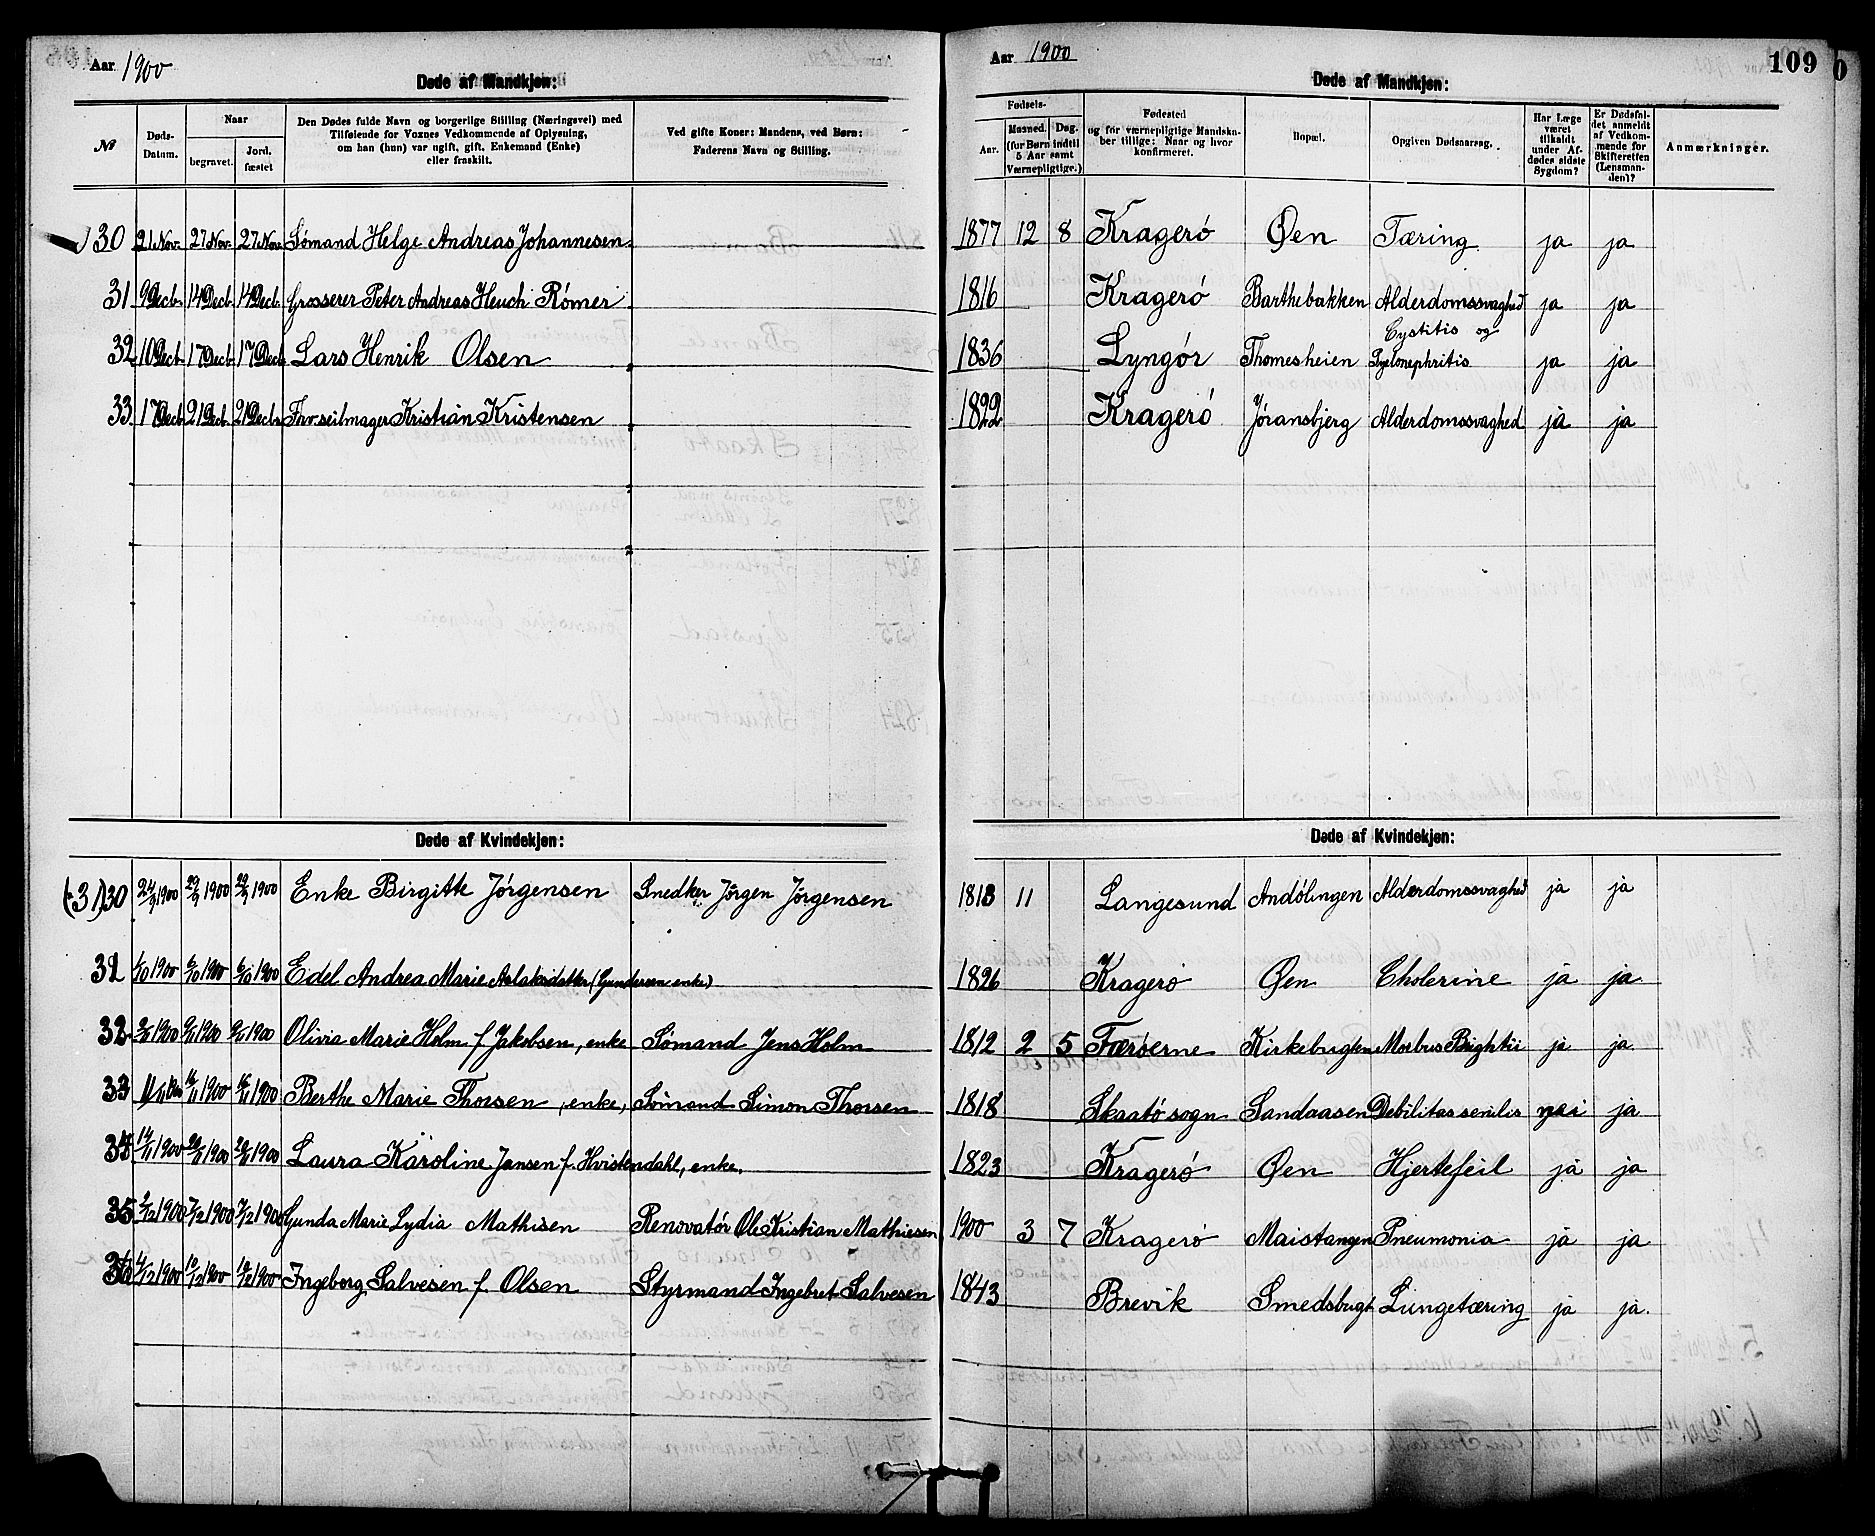 Aar 1900
Døde af Mandkjøn:
№
Døds-Datum.
Naar
begravet.
Jord-fæstet
Den Dødes fulde Navn og borgerlige Stilling (Næringsvei) med
Tilføiende for Voxnes Vedkommende af Oplysning,
om han (hun) var ugift, gift, Enkemand (Enke)
eller fraskilt.
Ved gifte Koner: Mandens, ved Børn:
Faderens Navn og Stilling.
30 21 Nov. 27 Nov. 27 Nov. Sømand Helge Andreas Johannesen
31 9 Decb. 14 Decb. 14 Decb. Grosserer Peter Andreas Heuch Rømer
32 10 Decb. 17 Decb. 17 Decb. Lars Henrik Olsen
33. 17 Decb. 21 Decb. 21 Decb. Fhv. seilmager Kristian Kristensen
Døde af Kvindekjøn:
(31) 30 24/9 1900 29/9 1900 29/9 1900 Enke Birgitte Jørgensen Snedker Jørgen Jørgensen
1/10 1900 6/10 1900 6/10 1900 Edel Andrea Marie Aslaksdatter (Gundersen enke)
1900 1900 1900 Olivia Marie Holm f. Jakobsen, enke Sømand Jens Holm
33 16/11 1900 16/11 1900 Berthe Marie Thorsen, enke, Sømand Simon Thorsen
34 14/11 1900 20/11 1900 20/11 1900 Laura Karoline Jansen f. Hvistendahl, enke.
35 2/12 1900 7/12 1900 7/12 1900 Gunda Marie Lydia Mathisen Renovatør Ole Kristian Mathiesen
36 4/12 1900 10/12 1900 10/12 1900 Ingeborg Salvesen f. Olsen Styrmand Ingebret Salvesen
Aar 1900
109
Døde af Mandkjøn:
Fødsels-
Aar.
Maaned. Dag.
(for Børn indtil
5 Aar samt
Værnepligtige.)
Fødested
og for værnepligtige Mandska-
ber tillige: Naar og hvor
konfirmeret.
Bopæl.
Opgiven Dødsaarsag.
Har Læge
været
tilkaldt
under Af-
dødes sidste
Sygdom?
Er Dødsfal-
det anmeldt
af Vedkom-
mende for
Skifteretten
(Lensman-
den)?
Anmærkninger.
1877 12 8 Kragerø Øen Tæring ja ja
1816 Kragerø Barthebakken Alderdomssvaghed ja ja
Cystitis og
1836 Lyngør Thomesheien Pyelonephritis ja ja
1822 Kragerø Jøransbjerg Alderdomssvaghed ja ja
Døde af Kvindekjøn:
1813 11 Langesund Andølingen Alderdomssvaghed ja ja
1826 Kragerø Øen Cholerine ja ja
1812 2 5 Færøerne Kirkebugten Morbus Brightii ja ja
1818 Skaatø sogn Sandaasen Debilitas senilis nei ja
1823 Kragerø Øen Hjertefeil ja ja
1900 3 7 Kragerø Maistangen Pneumonia ja ja
1843 Brevik Smedsbugt Lungetæring ja ja.